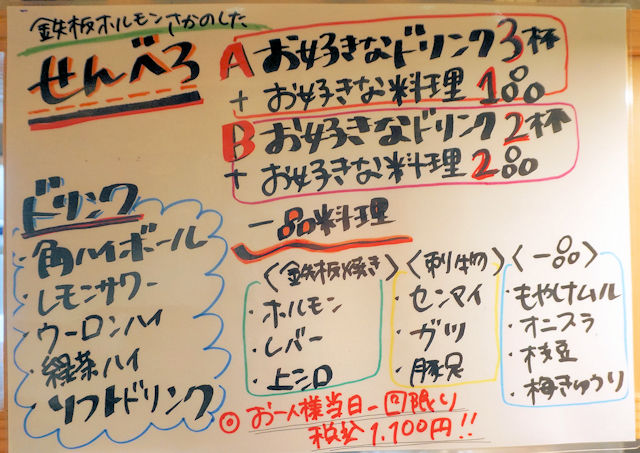 鉄板ホルモンさかのした
せんべろ
A お好きなドリンク3杯
+ お好きな料理1品
B お好きなドリンク2杯
+ お好きな料理2品
ドリンク
・角ハイボール
・レモンサワー
・ウーロンハイ
・緑茶ハイ
・ソフトドリンク
一品料理
〈鉄板焼き〉
・ホルモン
・レバー
・上シロ
〈刺物〉
・センマイ
・ガツ
・豚足
〈一品〉
・もやしナムル
・オニスラ
・枝豆
・梅きゅうり
◎ お一人様当日一回限り
税込1,100円!!